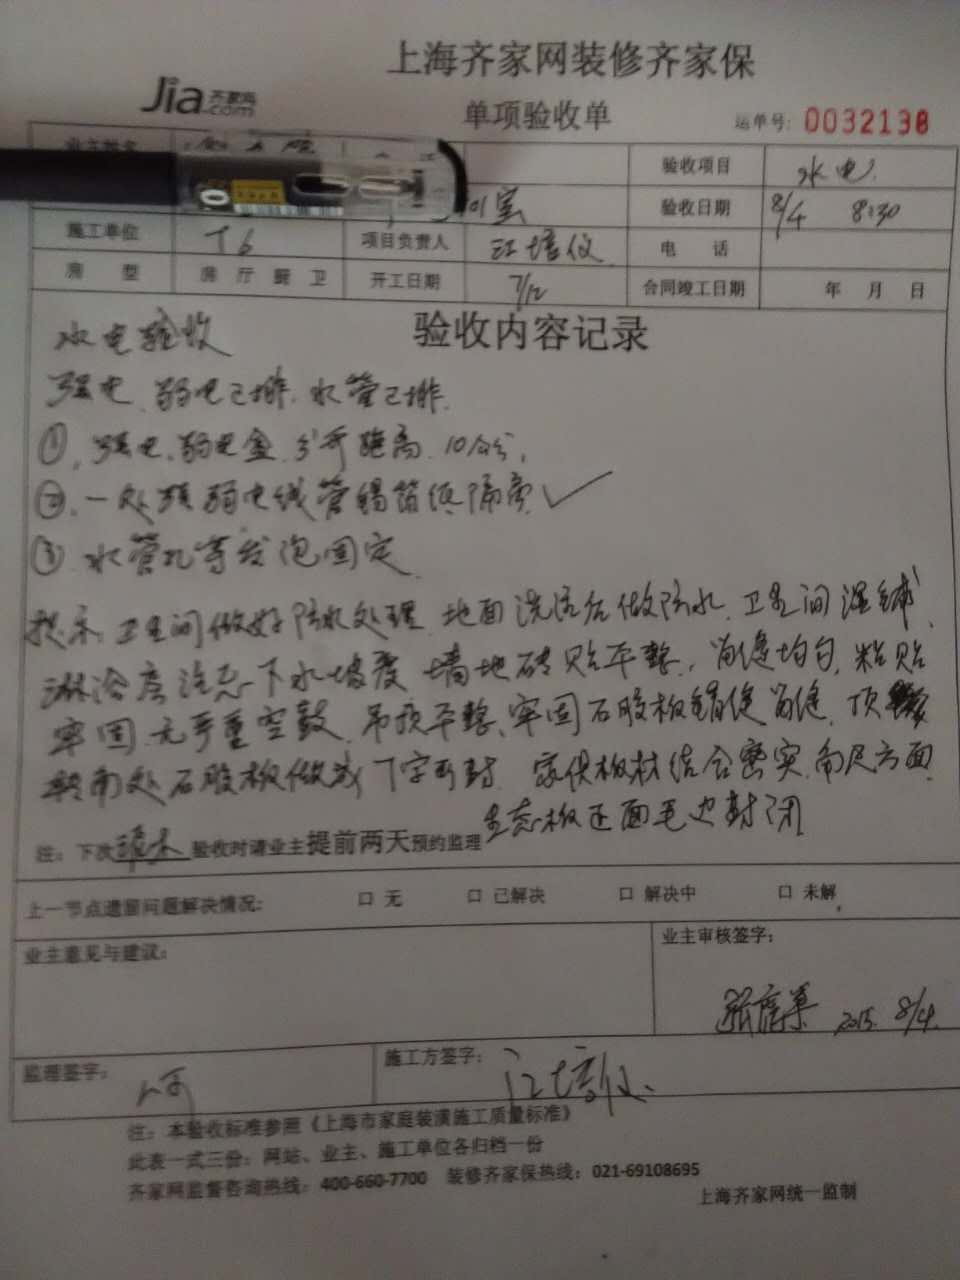 上海齐家网装修齐家保
Jia.com 齐家网
单项验收单
运单号: 0032138
业主姓名
验收项目 水电
验收日期 8/4 8:30
施工单位
项目负责人 江培仪
电 话
房 型 房 厅 厨 卫
开工日期 7/12
合同竣工日期 年 月 日
验收内容记录
水电验收
强电、弱电已排.水管已排.
①、强电、弱电盒分开距离10公分.
②、一处强弱电线管锡箔纸隔离✓
③水管孔等发泡固定.
提示:卫生间做好防水处理.地面洗活后做防水.卫生间湿铺.
淋浴房注意下水坡度.墙地砖贴平整,留缝均匀,粘贴
牢固.无严重空鼓.吊顶平整、牢固石膏板错缝留缝.顶
转角处石膏板做成7字型封.家俱板材结合密实
生态板正面毛边封闭
注: 下次 验收时请业主提前两天预约监理
上一节点遗留问题解决情况: 口 无 口 已解决 口 解决中 口 未解
业主意见与建议:
业主审核签字:
2015. 8/4.
监理签字:
施工方签字: 江培仪
注: 本验收标准参照《上海市家庭装潢施工质量标准》
此表一式三份: 网站、业主、施工单位各归档一份
齐家网监督咨询热线: 400-660-7700 装修齐家保热线: 021-69108695
上海齐家网统一监制